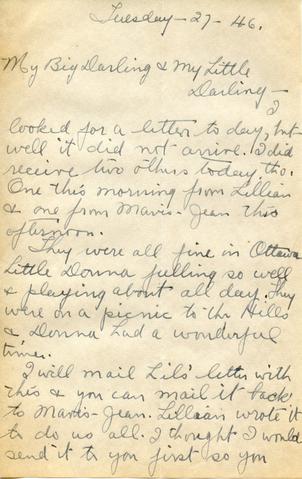 Tuesday - 27 - 46.
My Big Darling & My Little
Darling - I
looked for a letter to day, but
well it did not arrive. I did
receive two others today, tho.
One this morning from Lillian
& one from Mavis-Jean this
afternoon.
They were all fine in Ottawa
Little Donna felling so well
& playing about all day. They
were on a picnic to the Hills
& Donna had a wonderful
time.
I will mail Lils' letter with
this & you can mail it back
to Mavis-Jean. Lillian wrote it
to do us all. I thought I would
send it to you first so you